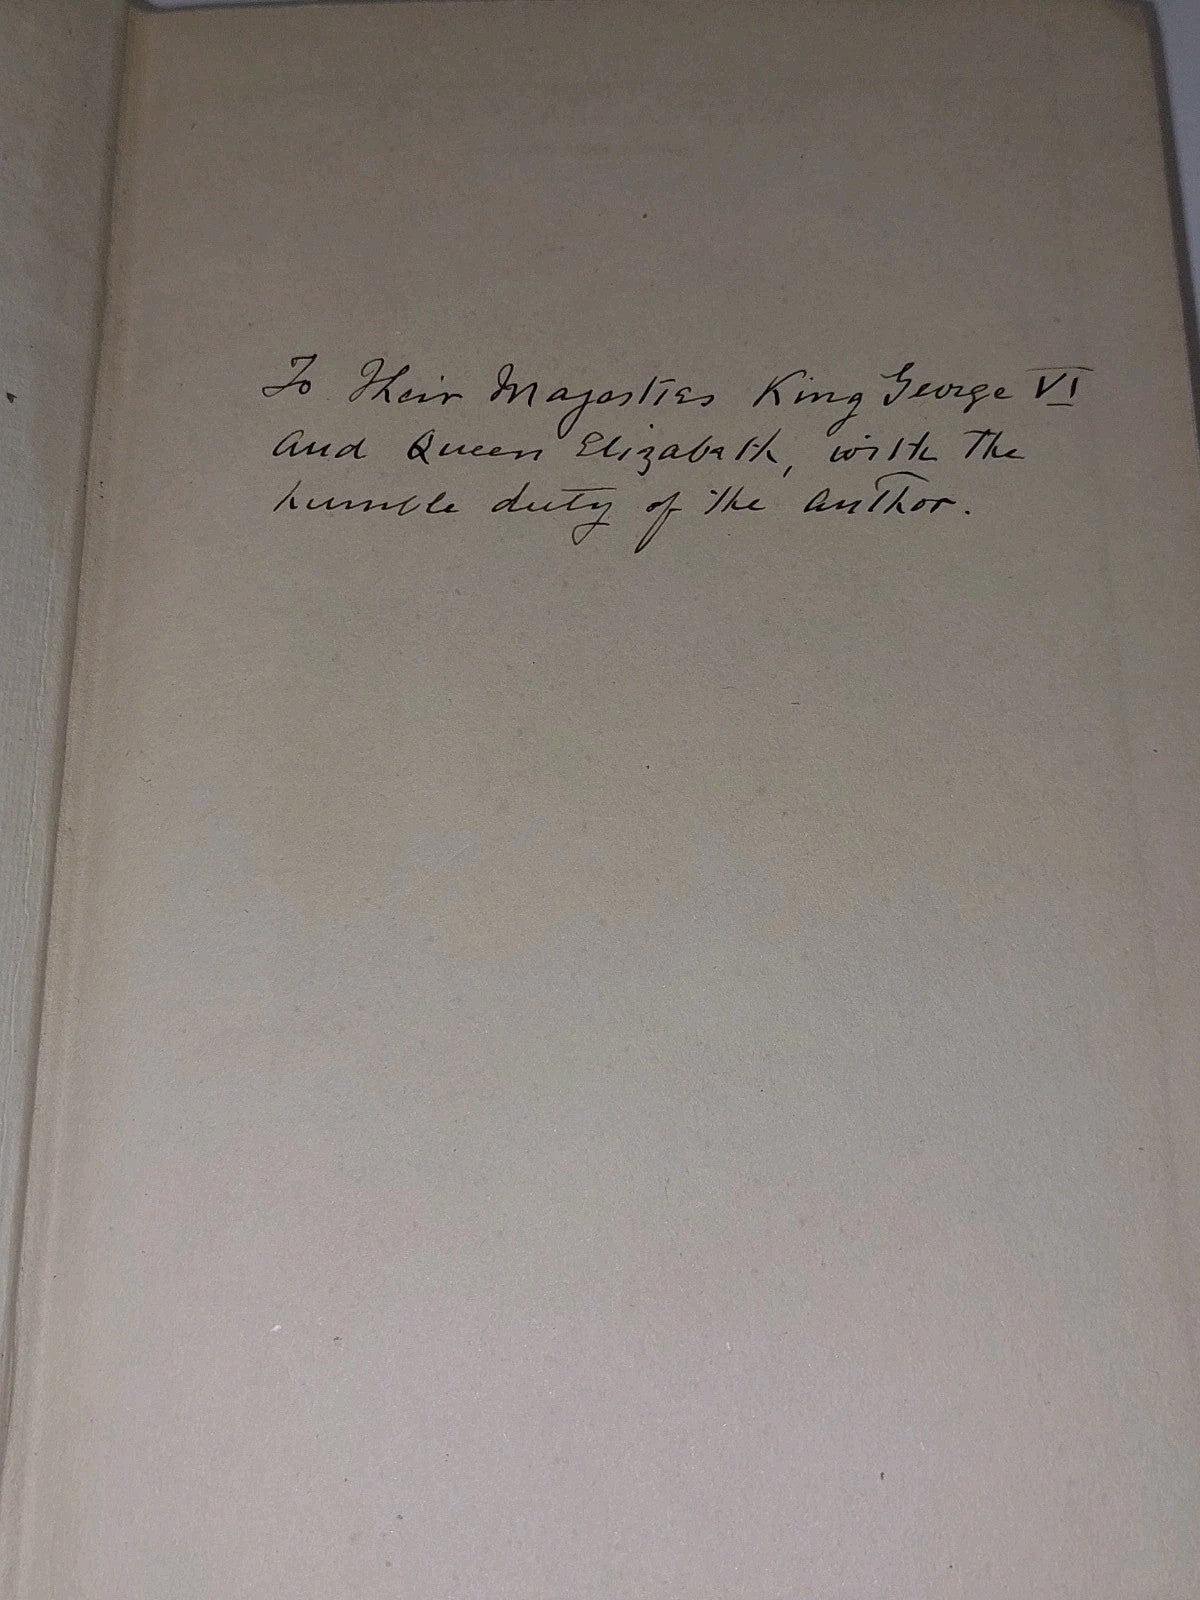 To Their Majesties King George VI
and Queen Elizabeth, with the
humble duty of the author.